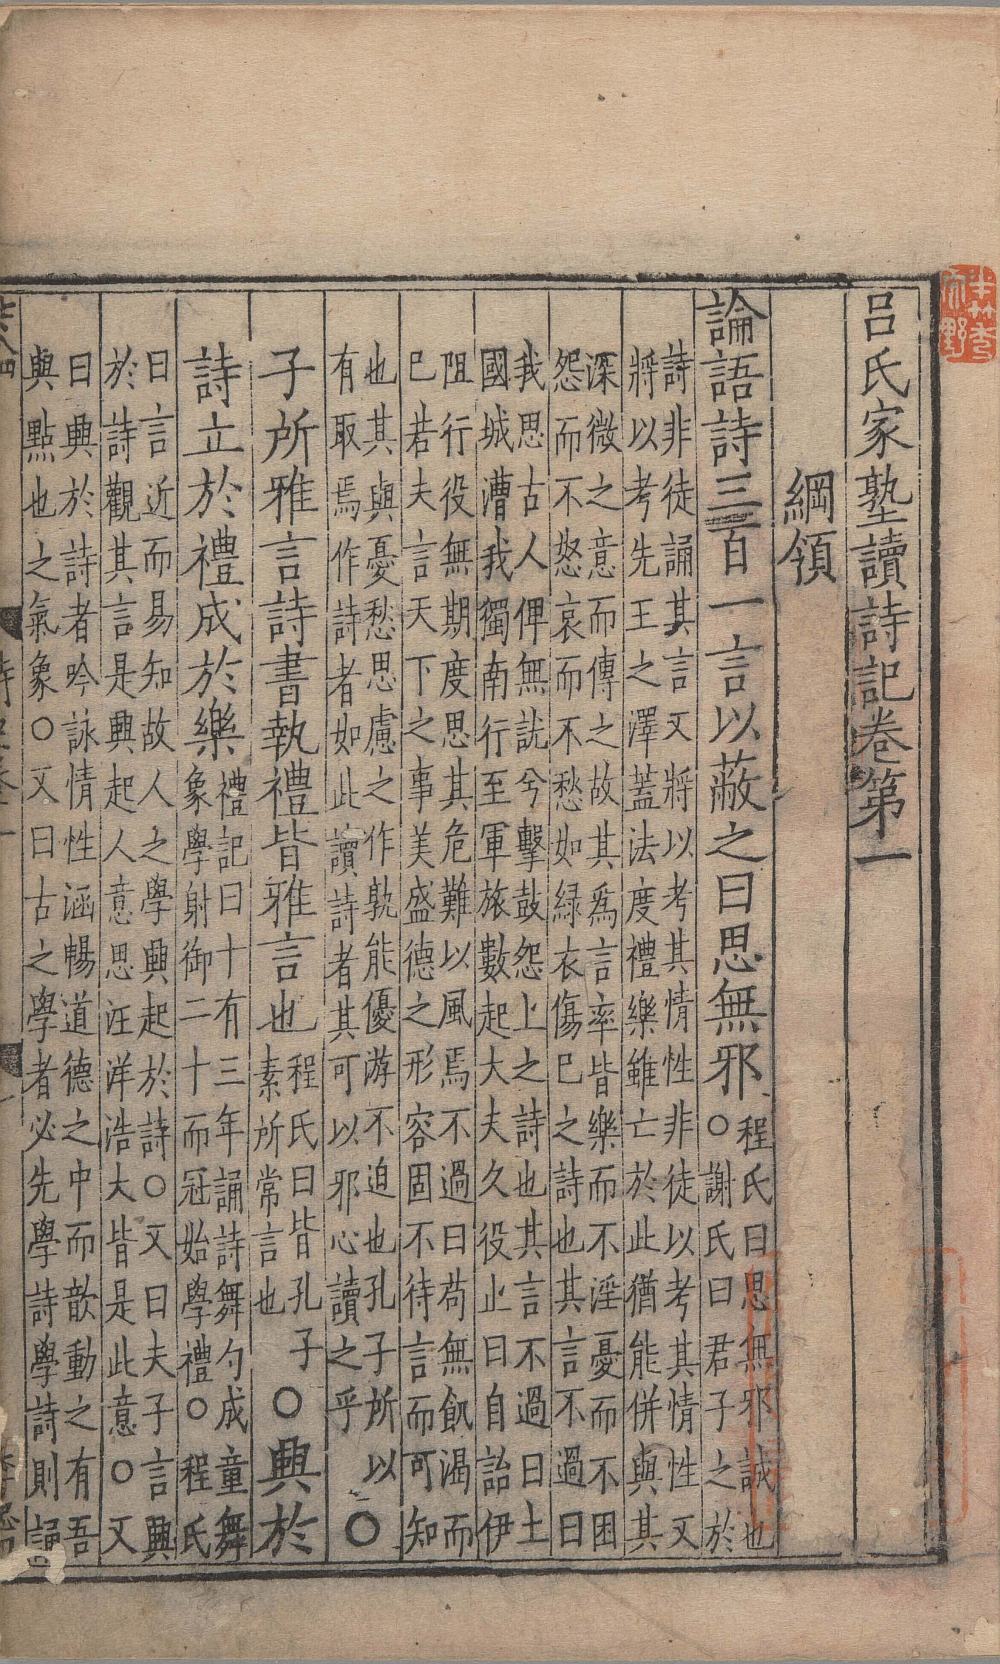 呂氏家塾讀詩記卷第一
綱領
論語詩三百一言以蔽之曰思無邪
程氏曰思無邪誠也
○謝氏曰君子之於
詩非徒誦其言又將以考其情性非徒以考其情性又
將以考先王之澤蓋法度禮樂雖亡於此猶能併與其
深微之意而傳之故其爲言率皆樂而不淫憂而不困
怨而不怒哀而不愁如緑衣傷已之詩也其言不過曰
我思古人俾無訧兮擊鼓怨上之詩也其言不過曰土
國城漕我獨南行至軍旅數起大夫久役止曰自詒伊
阻行役無期度思其危難以風焉不過曰苟無飢渴而
已若夫言天下之事美盛德之形容固不待言而可知
也其與憂愁思慮之作孰能優游不迫也孔子所以
有取焉作詩者如此讀詩者其可以邪心讀之乎
○
子所雅言詩書執禮皆雅言也
程氏曰皆孔子
素所常言也
○興於
詩立於禮成於樂
禮記曰十有三年誦詩舞勺成童舞
象學射御二十而冠始學禮○程氏
曰言近而易知故人之學興起於詩○又曰夫子言興
於詩觀其言是興起人意思汪洋浩大皆是此意○又
曰興於詩者吟詠情性涵暢道德之中而歆動之有吾
與點也之氣象○又曰古之學者必先學詩學詩則誦